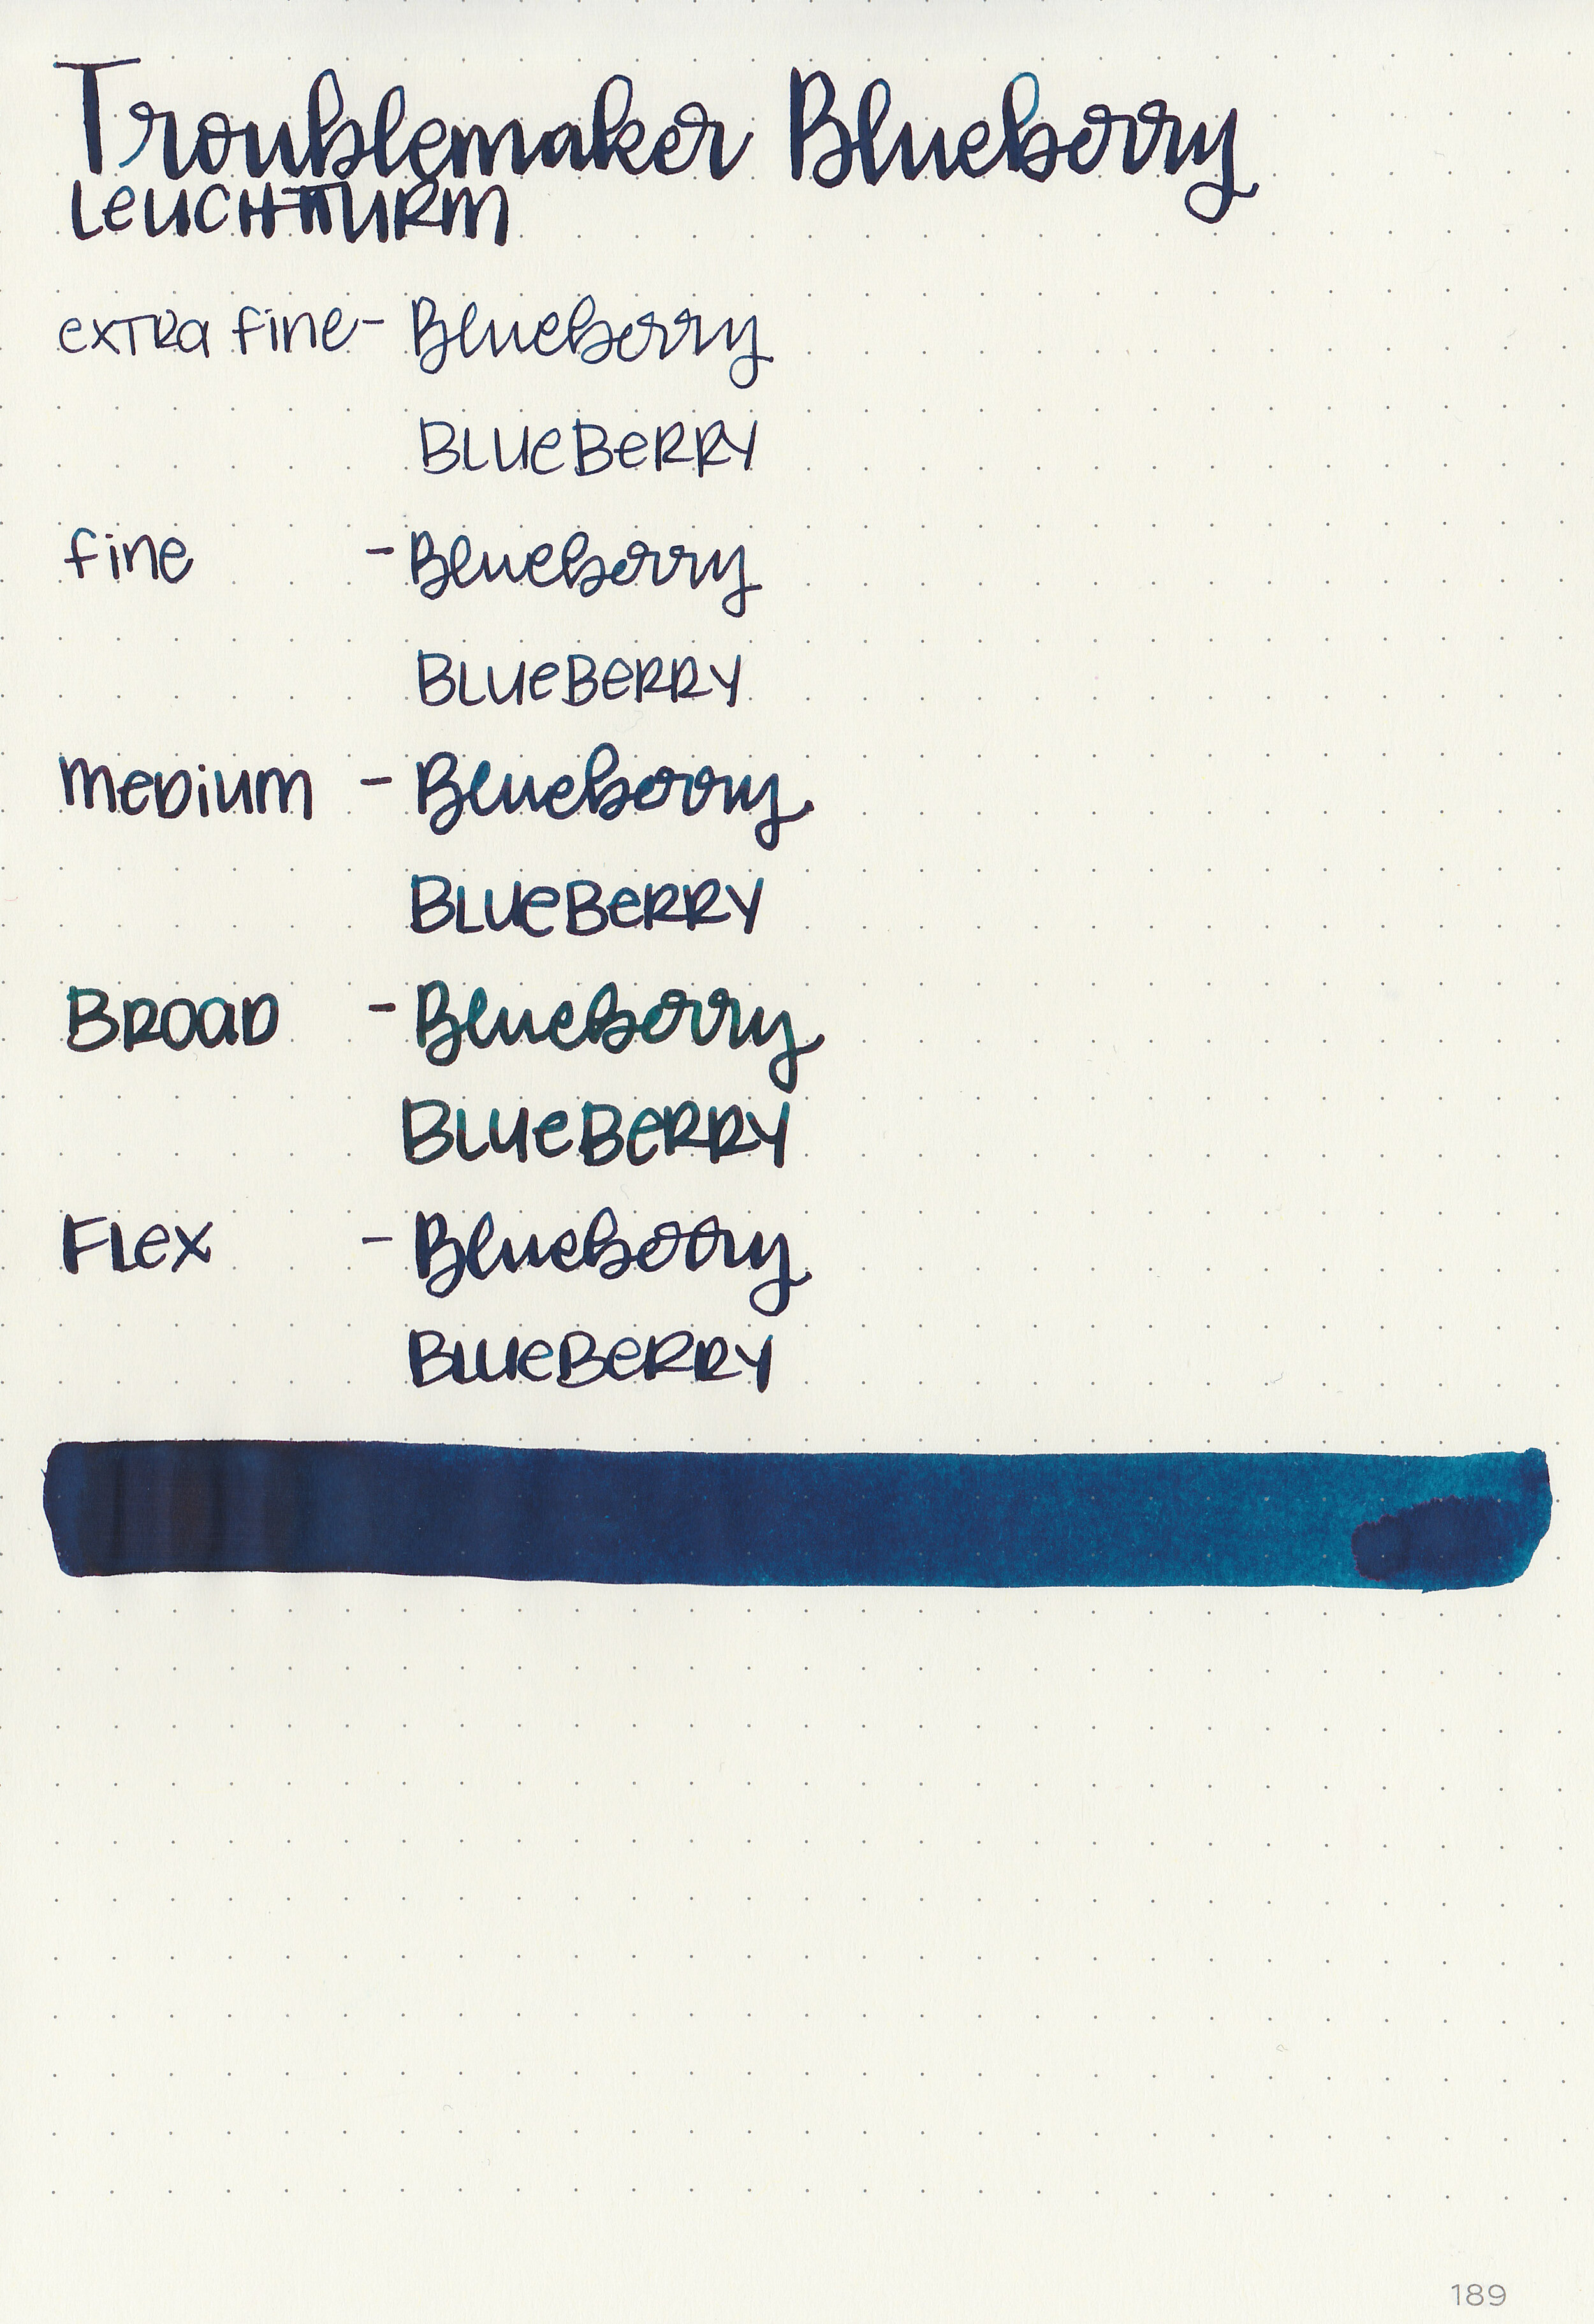 Troublemaker Blueberry
LEUCHTTURM
extra fine - Blueberry
BLUEBERRY
fine - Blueberry
BLUEBERRY
medium - Blueberry
BLUEBERRY
Broad - Blueberry
BLUEBERRY
Flex - Blueberry
BLUEBERRY
189